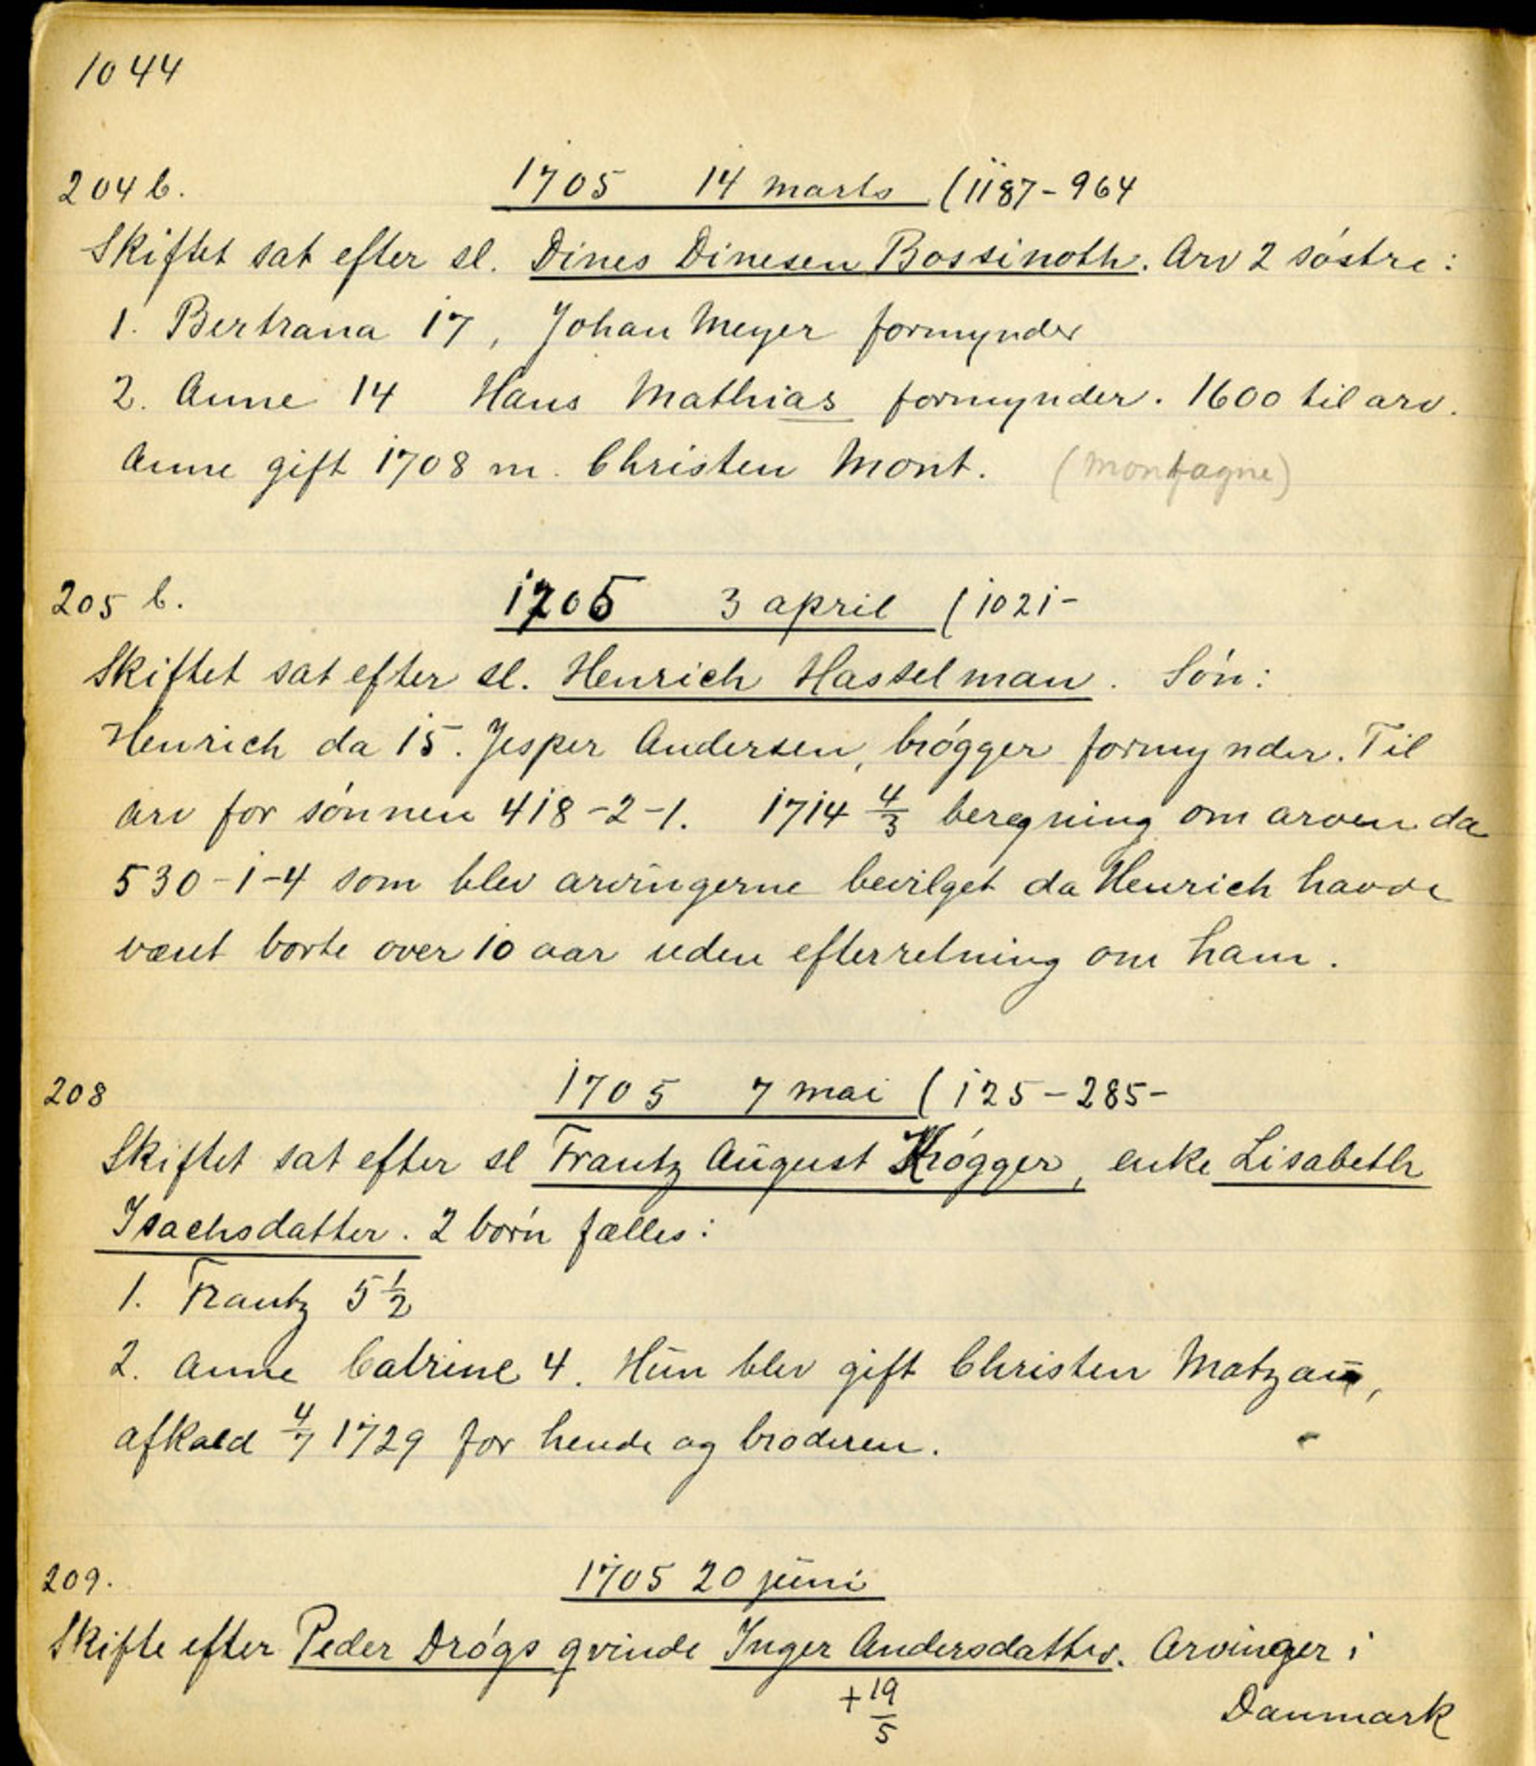 1044
204 b. 1705 14 marts (1187-964
Skiftet sat efter sl. Dines Dinesen Bossinoth. Arv 2 søstre:
1. Bertrana 17, Johan Meyer formynder
2. Anne 14 Hans Mathias formynder. 1600 til arv.
Anne gift 1708 m. Christen Mont. (montagne)
205 b. 1705 3 april (1021-
Skiftet sat efter sl. Henrich Hasselman. Søn:
Henrich da 15. Jesper Andersen, brøgger formynder. Til
arv for sønnen 418-2-1. 1714 4/3 beregning om arven da
530-1-4 som blev arvingerne bevilget da Henrich havde
været borte over 10 aar uden efterretning om ham.
208 1705 7 mai (125-285-
Skiftet sat efter sl Frantz August Krøgger, enke Lisabeth
Isachsdatter. 2 børn fælles:
1. Frantz 5 1/2
2. Anne Catrine 4. Hun blev gift Christen Matzau,
afkald 4/7 1729 for hende og broderen.
209. 1705 20 juni
Skifte efter Peder Drøgs qvinde Inger Andersdatter. Arvinger i
+ 19/5 Danmark